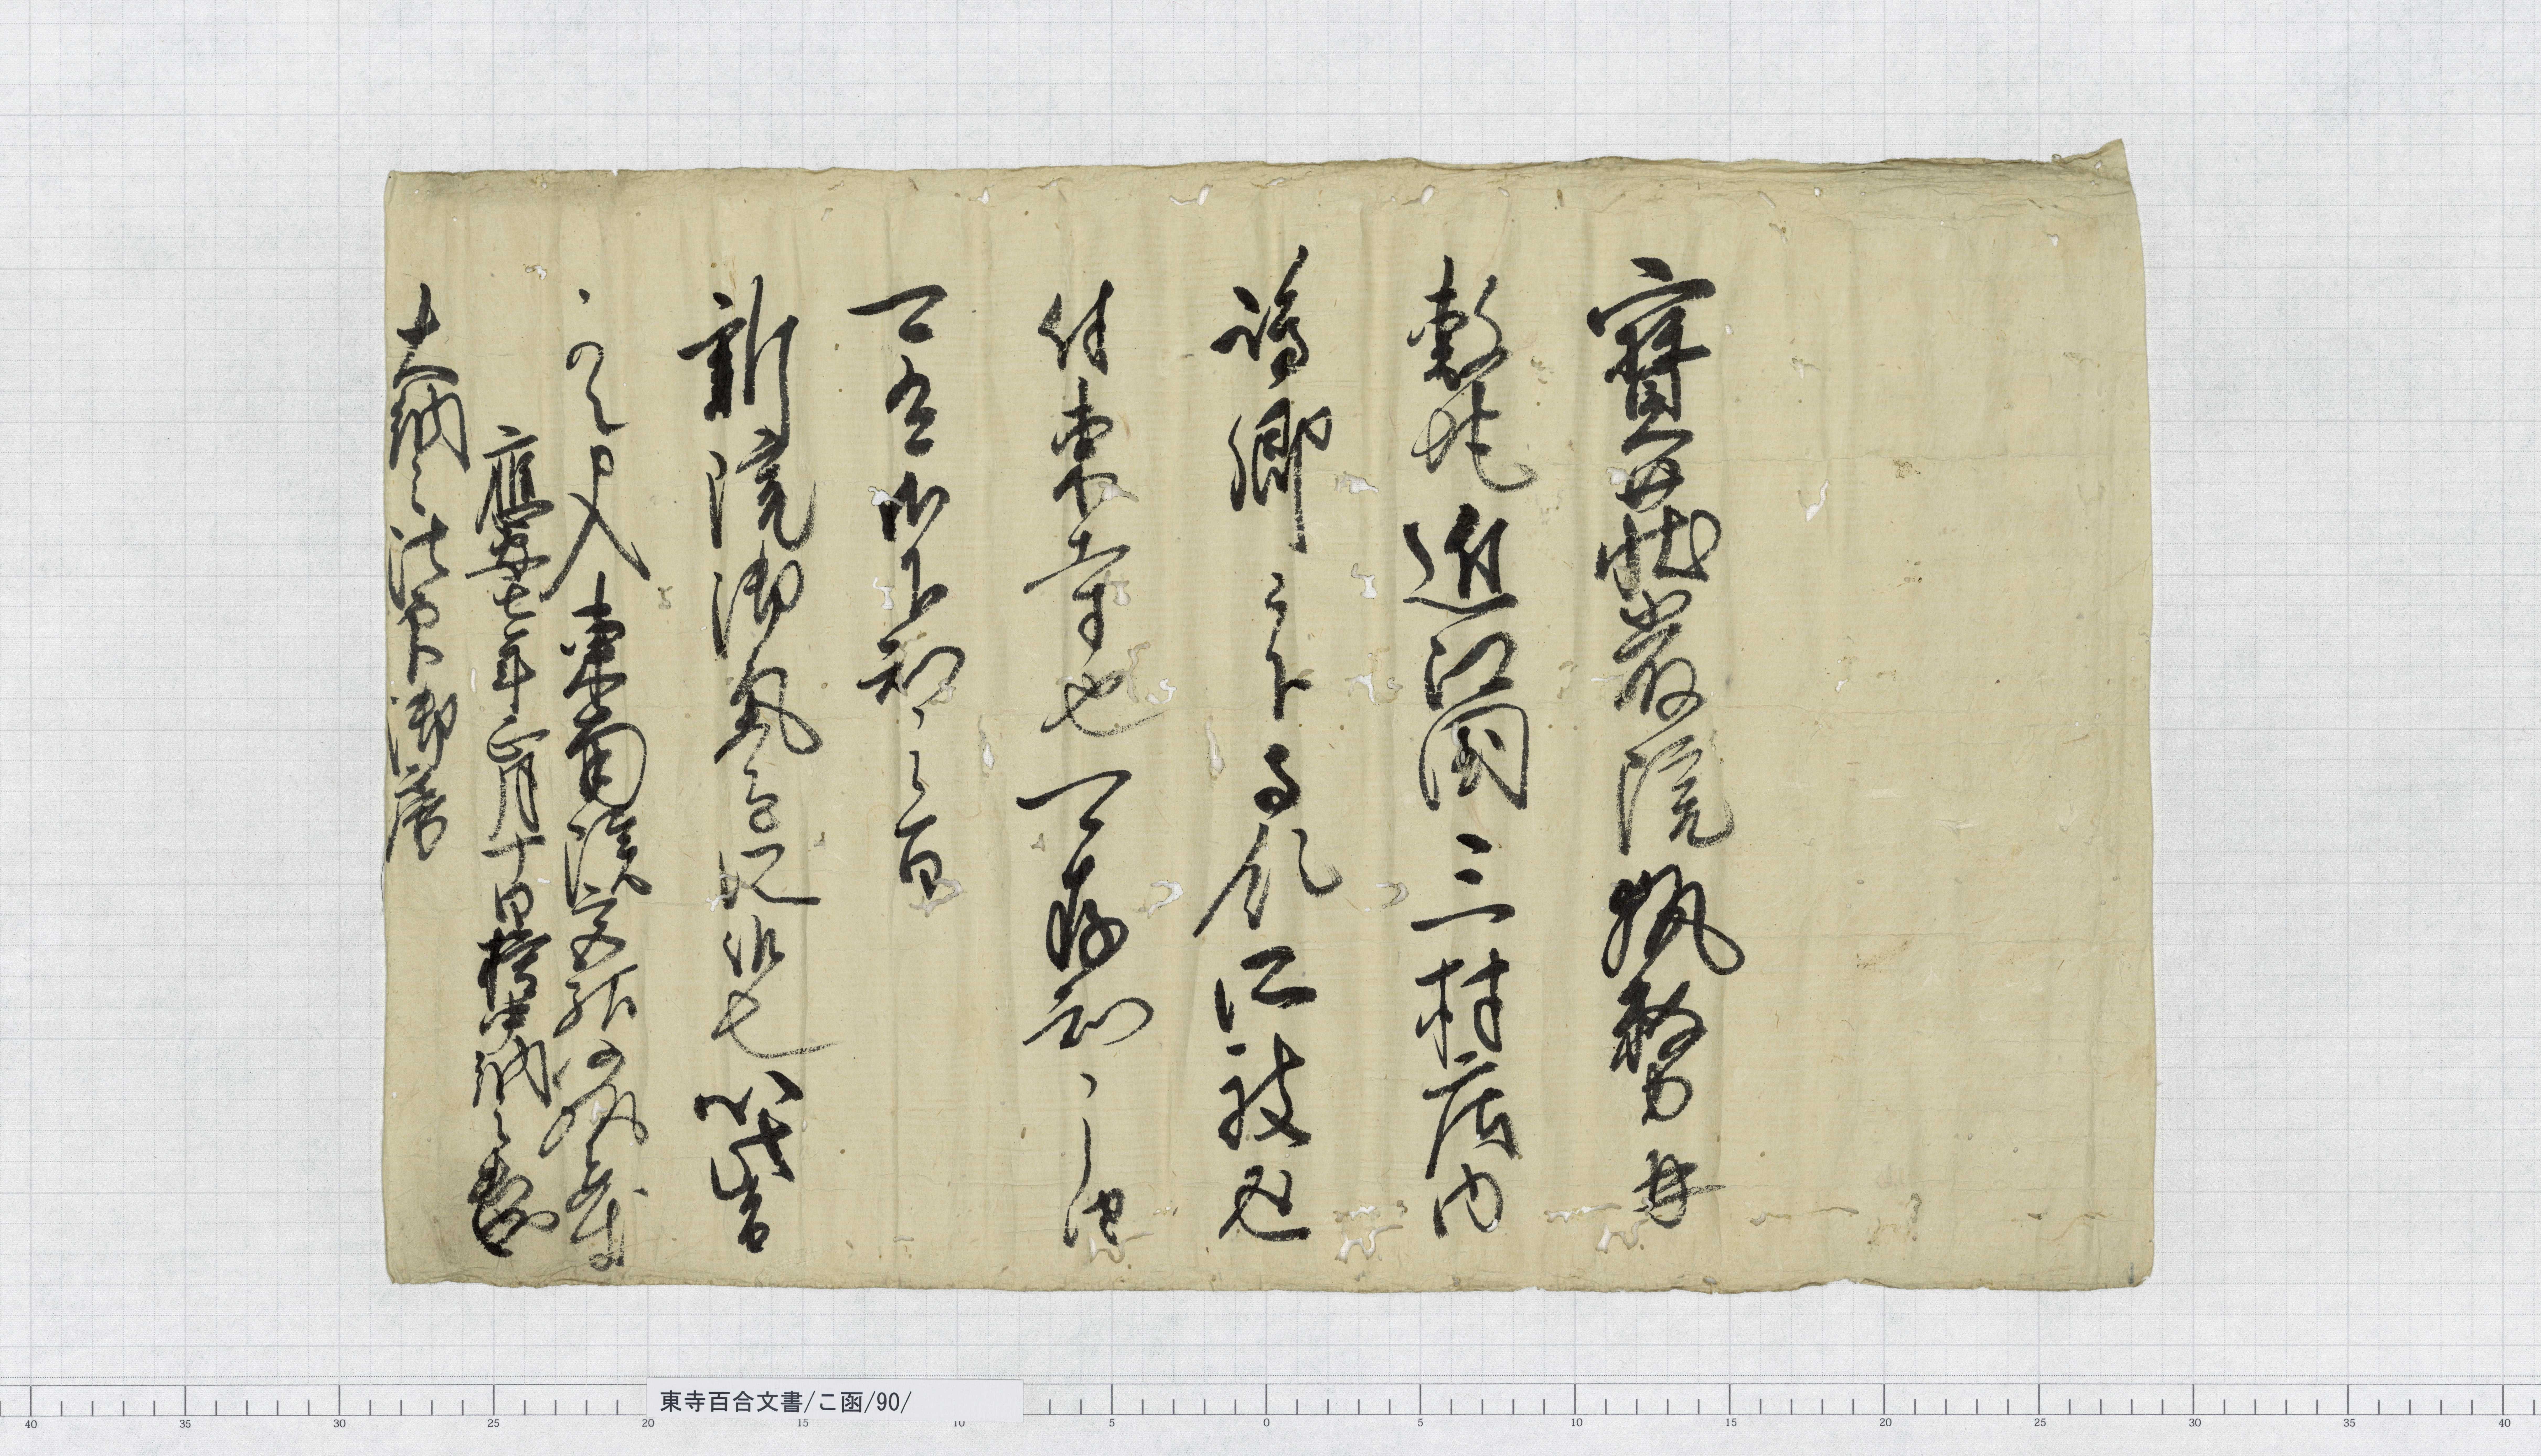 寶莊嚴院執務并
敷地近江国三村庄内
嶋郷以下事所被返
付東寺也可存知之由
可有御下知之旨
新院御氣色所候也以此旨
可令申入東南院宮給仍執達如件
應安七年正月十日権中納言
大納言法印御房
東寺百合文書/こ函/90/
40 35 30 25 20 15 10 5 0 5 10 15 20 25 30 35 40